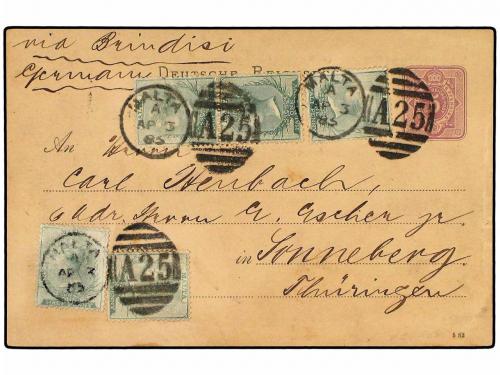 via Brindisi
Germany DEUTSCHE RE
MALTA A AP 3 85 A25 MALTA A AP 3 85 A25
An Herrn
Carl
Addr. Herrn G. Escher jr.
in Sonneberg
Thüringen
MALTA A AP 3 85 A25
5 83